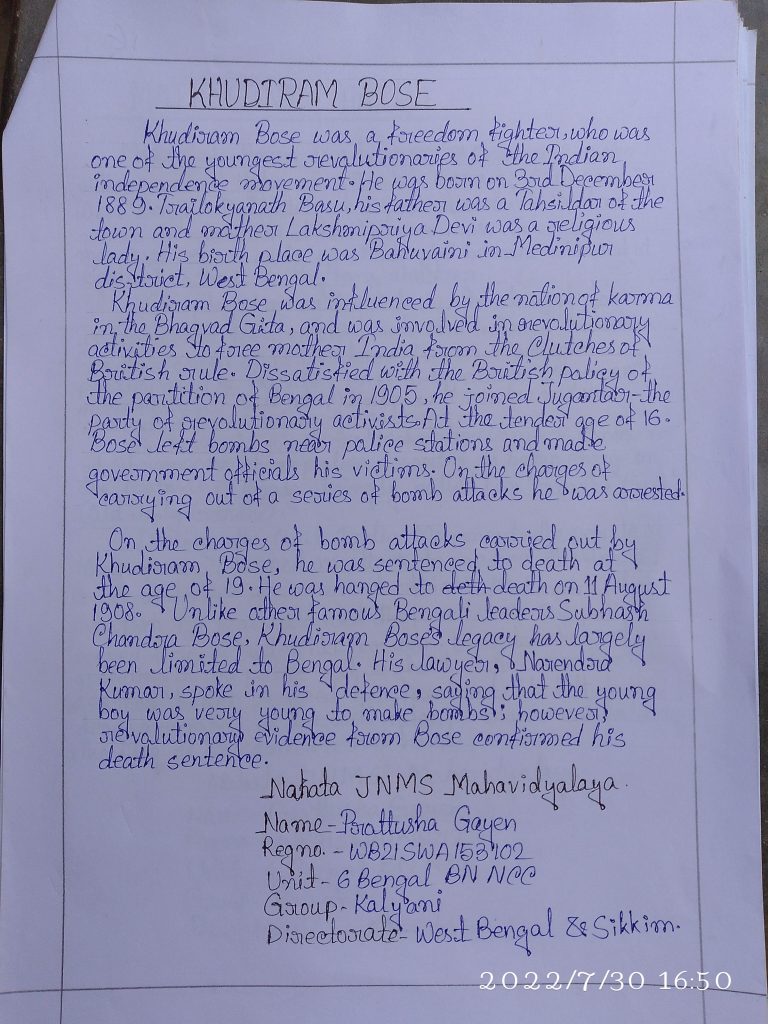 KHUDIRAM BOSE
Khudiram Bose was a freedom fighter, who was
one of the youngest revalutionaries of the Indian
independence movement. He was born on 3rd December
1889. Trailokyanath Basu, his father was a Tahsildar of the
town and mother Lakshmipriya Devi was a religious
lady. His birth place was Bahuvaini in Medinipur
district, West Bengal.
Khudiram Bose was influenced by the nation of karma
in the Bhagvad Gita, and was involved in revolutionary
activities to free mother India from the Clutches of
British rule. Dissatisfied with the British policy of
the partition of Bengal in 1905, he joined Jugantar-the
party of revolutionary activists. At the tender age of 16.
Bose left bombs near police stations and made
government officials his victims. On the charges of
carrying out of a series of bomb attacks he was arrested.
On the charges of bomb attacks carried out by
Khudiram Bose, he was sentenced to death at
the age of 19. He was hanged to deth death on 11 August
1908. Unlike other famous Bengali leaders Subhash
Chandra Bose, Khudiram Bose's legacy has largely
been limited to Bengal. His lawyer, Narendra
Kumar, spoke in his defence, saying that the young
boy was very young to make bombs; however,
revalutionary evidence from Bose confirmed his
death sentence.
Nahata JNMS Mahavidyalaya.
Name - Prattusha Gayen
Regno. - WB21SWA153102
Unit - 6 Bengal BN NCC
Group - Kalyani
Directorate - West Bengal & Sikkim.
2022/7/30 16:50